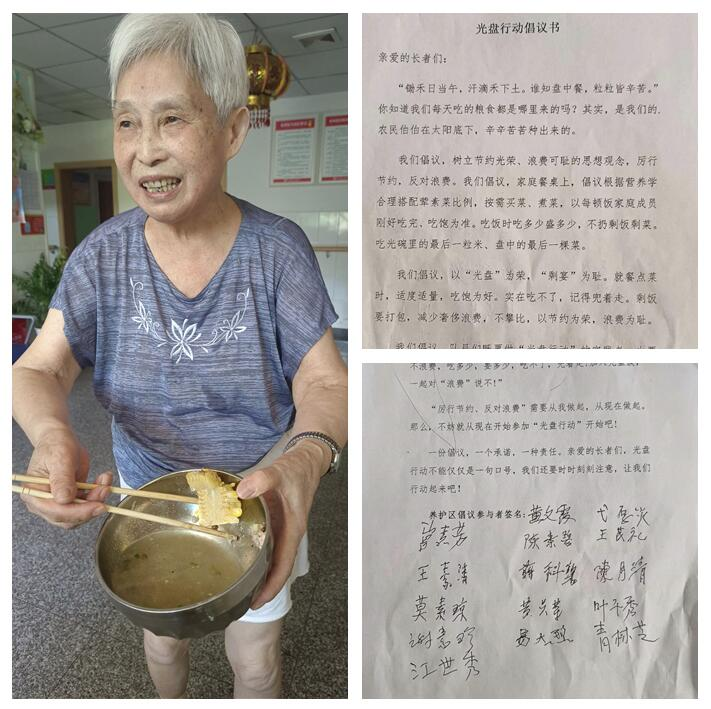 光盘行动倡议书
亲爱的长者们：
“锄禾日当午，汗滴禾下土。谁知盘中餐，粒粒皆辛苦。”
你知道我们每天吃的粮食都是哪里来的吗？其实，是我们的
农民伯伯在太阳底下，辛辛苦苦种出来的。
我们倡议，树立节约光荣、浪费可耻的思想观念，厉行
节约，反对浪费。我们倡议，家庭餐桌上，倡议根据营养学
合理搭配荤素菜比例，按需买菜、煮菜，以每顿饭家庭成员
刚好吃完、吃饱为准。吃饭时吃多少盛多少，不扔剩饭剩菜。
吃光碗里的最后一粒米、盘中的最后一棵菜。
我们倡议，以“光盘”为荣，“剩宴”为耻。就餐点菜
时，适度适量，吃饱为好。实在吃不了，记得兜着走。剩饭
要打包，减少奢侈浪费，不攀比，以节约为荣，浪费为耻。
不浪费，吃多少，要多少，吃不了，兜着走！
一起对“浪费”说不！”
“厉行节约、反对浪费”需要从我做起，从现在做起。
那么，不妨就从现在开始参加“光盘行动”开始吧！
一份倡议，一个承诺，一种责任。亲爱的长者们，光盘
行动不能仅仅是一句口号，我们还要时时刻刻注意，让我们
行动起来吧！
养护区倡议参与者签名：黄文霞
陈素碧 王民礼
王素清 陳月清
莫素琼 叶不秀
谢意珍 青林芝
江世秀